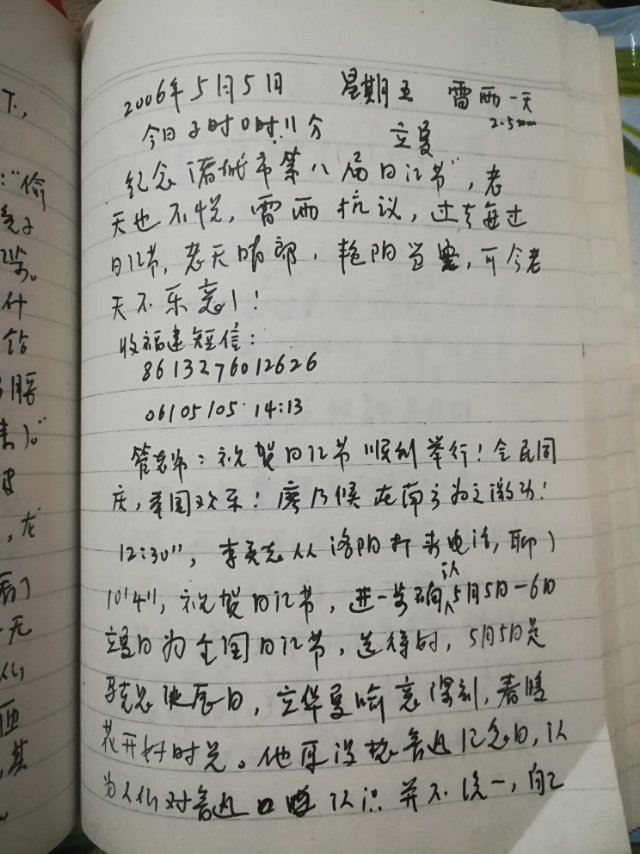 下，
："偷
什
给
腰
，龙
一无
其
2006年5月5日 星期五 雷雨一天
2.5mm
今日子时0时11分 立夏
纪念"诸城市第八届日记节"，老
天也不悦，雷雨抗议，过去每过
日记节，老天晴朗，艳阳当空，可今老
天不乐意！！
收福建短信：
8613276012626
06/05/05 14:13
管老师：祝贺日记节顺利举行！全民同
庆，举国欢乐！廖乃候在南方为之激动！
12:30"，李 从洛阳打来电话，聊了
10'4"，祝贺日记节，进一步确认5月5日—6日
立夏日为全国日记节，选得好，5月5日是
马克思诞辰日，立华夏喻意深刻，春暖
花开好时光。他再没提鲁迅纪念日，认
为人们对鲁迅 认识并不统一，自己